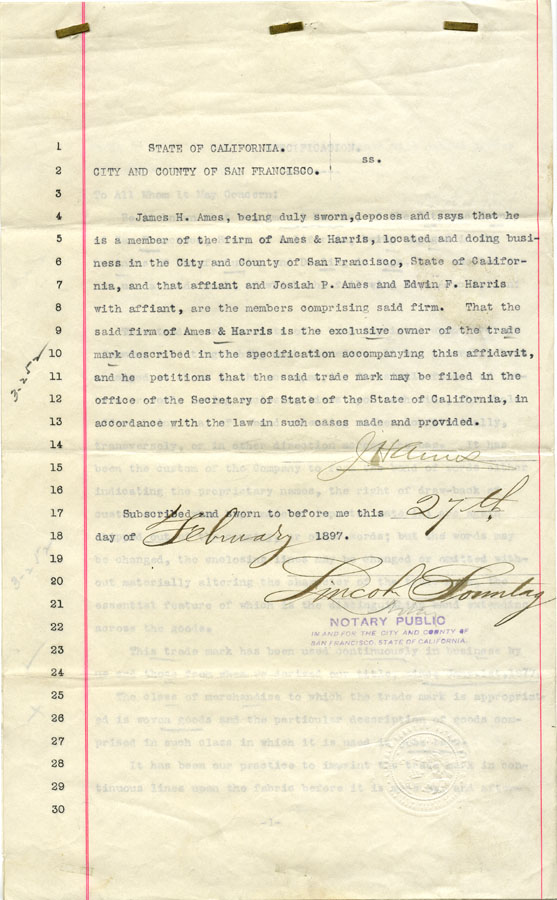 1 STATE OF CALIFORNIA.
ss.
2 CITY AND COUNTY OF SAN FRANCISCO.
3
4 James H. Ames, being duly sworn,deposes and says that he
5 is a member of the firm of Ames & Harris, located and doing busi-
6 ness in the City and County of San Francisco, State of Califor-
7 nia, and that affiant and Josiah P. Ames and Edwin F. Harris
8 with affiant, are the members comprising said firm. That the
9 said firm of Ames & Harris is the exclusive owner of the trade
10 mark described in the specification accompanying this affidavit,
11 and he petitions that the said trade mark may be filed in the
12 office of the Secretary of State of the State of California, in
13 accordance with the law in such cases made and provided.
3-252
14 J H Ames
15
16
17 Subscribed and sworn to before me this 27th
18 day of February 1897.
19
20 Lincoln Sonntag
21
NOTARY PUBLIC
22 IN AND FOR THE CITY AND COUNTY OF
SAN FRANCISCO, STATE OF CALIFORNIA.
23
24
25
26
27
28
29
30